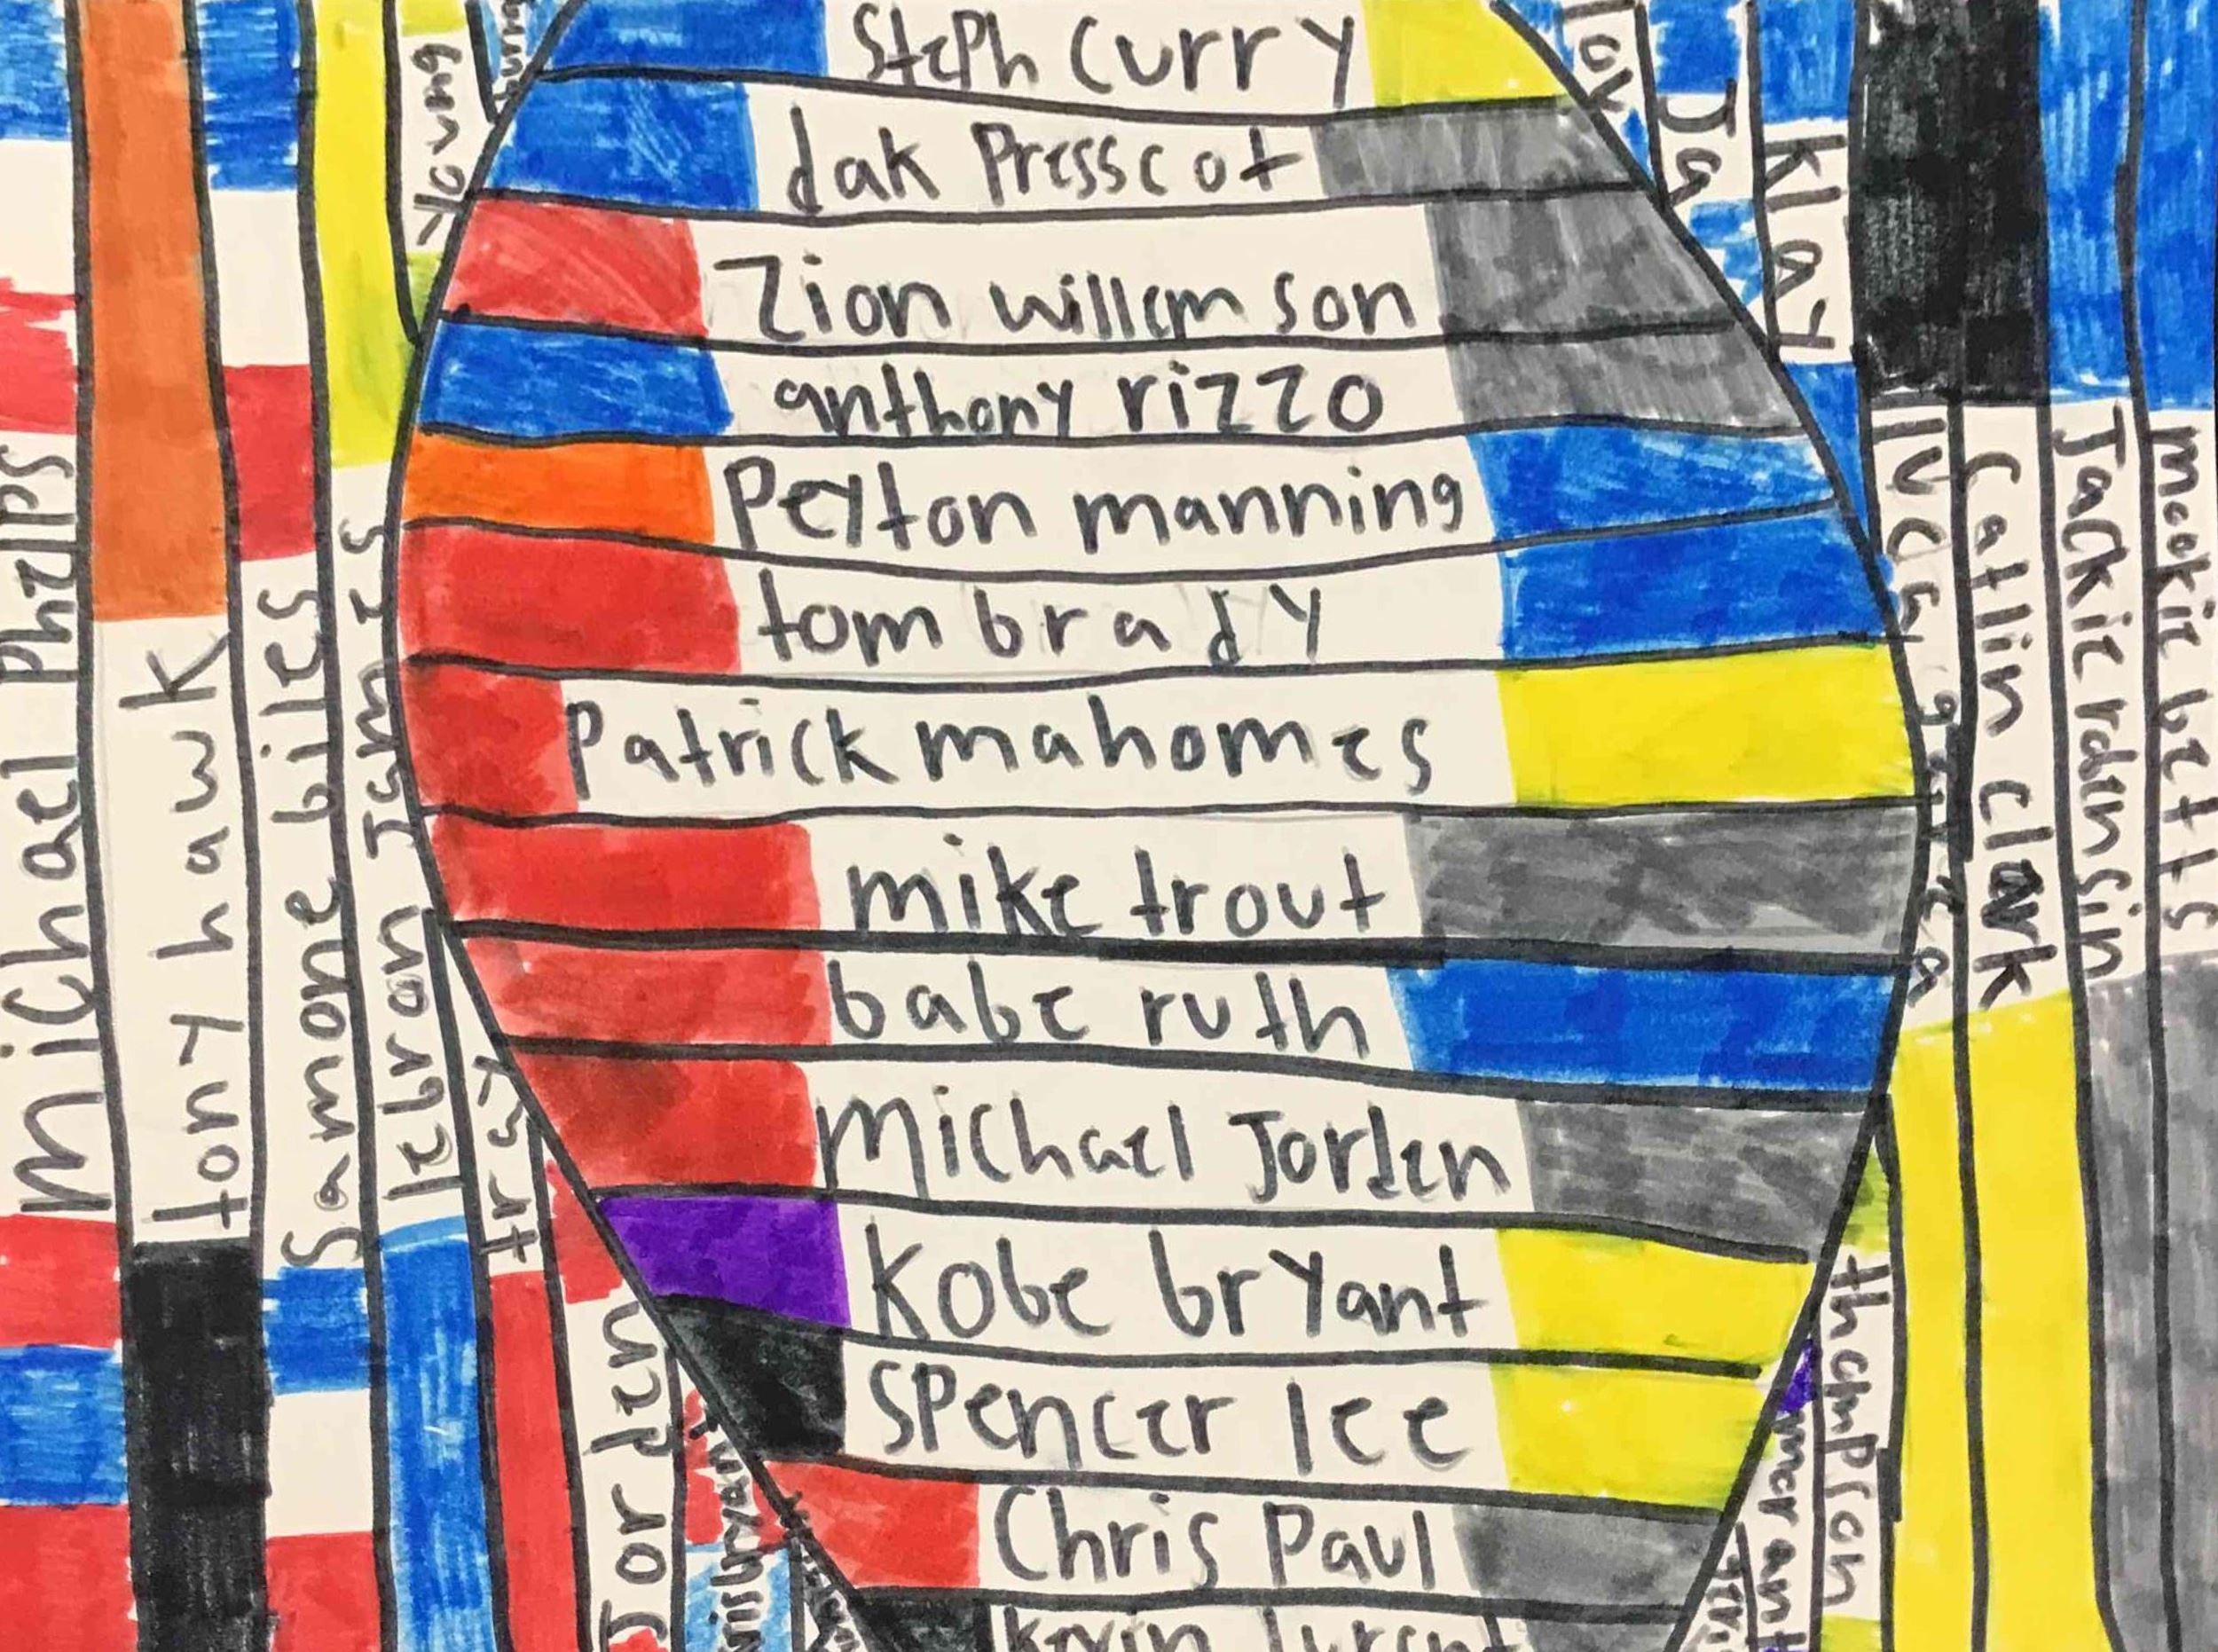 Steph Curry
dak Presscot
Zion willem son
anthony rizzo
Peyton manning
tom brady
Patrick mahomes
mike trout
babe ruth
Michael Jorden
Kobe bryant
Spencer lee
Chris Paul
michael Phelps
tony hawk
Samone biles
lebron James
tray
Young
Jorden
Ja
Klay
thompson
Catlin clark
Jackie robinsin
mookie betts